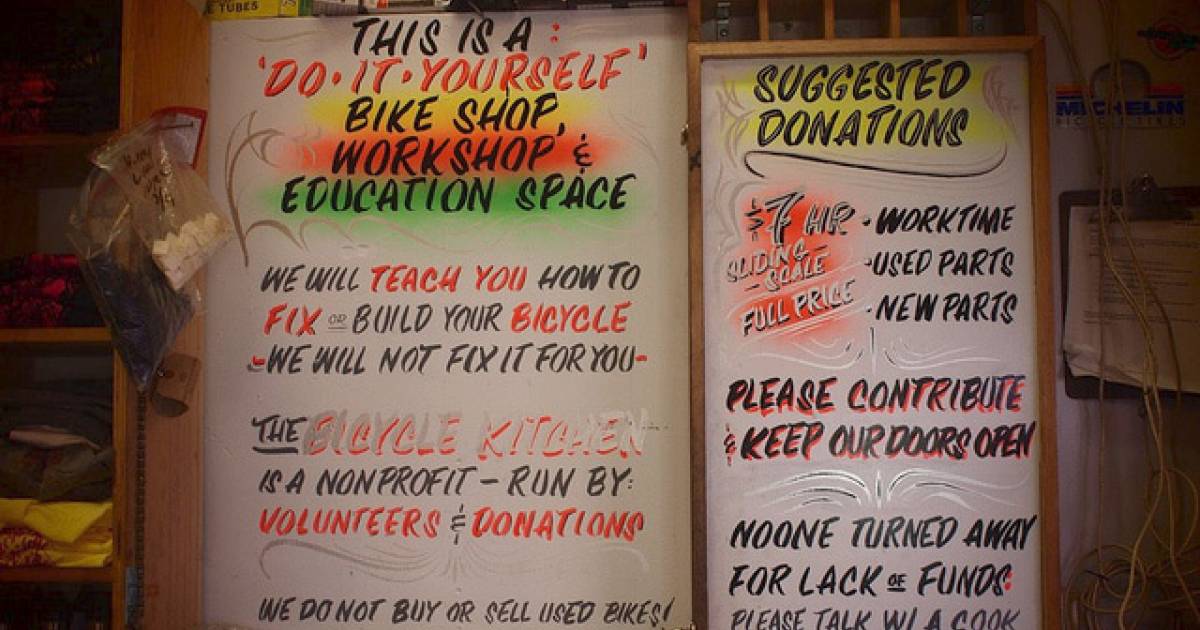 TUBES
THIS IS A :
'DO·IT·YOURSELF'
BIKE SHOP,
WORKSHOP &
EDUCATION SPACE
WE WILL TEACH YOU HOW TO
FIX OR BUILD YOUR BICYCLE
-WE WILL NOT FIX IT FOR YOU-
THE BICYCLE KITCHEN
IS A NONPROFIT - RUN BY:
VOLUNTEERS & DONATIONS
WE DO NOT BUY OR SELL USED BIKES!
SUGGESTED
DONATIONS
$7 HR · WORKTIME
SLIDING - SCALE · USED PARTS
FULL PRICE · NEW PARTS
PLEASE CONTRIBUTE
& KEEP OUR DOORS OPEN
NOONE TURNED AWAY
FOR LACK OF FUNDS:
PLEASE TALK W/ A COOK
MICHELIN